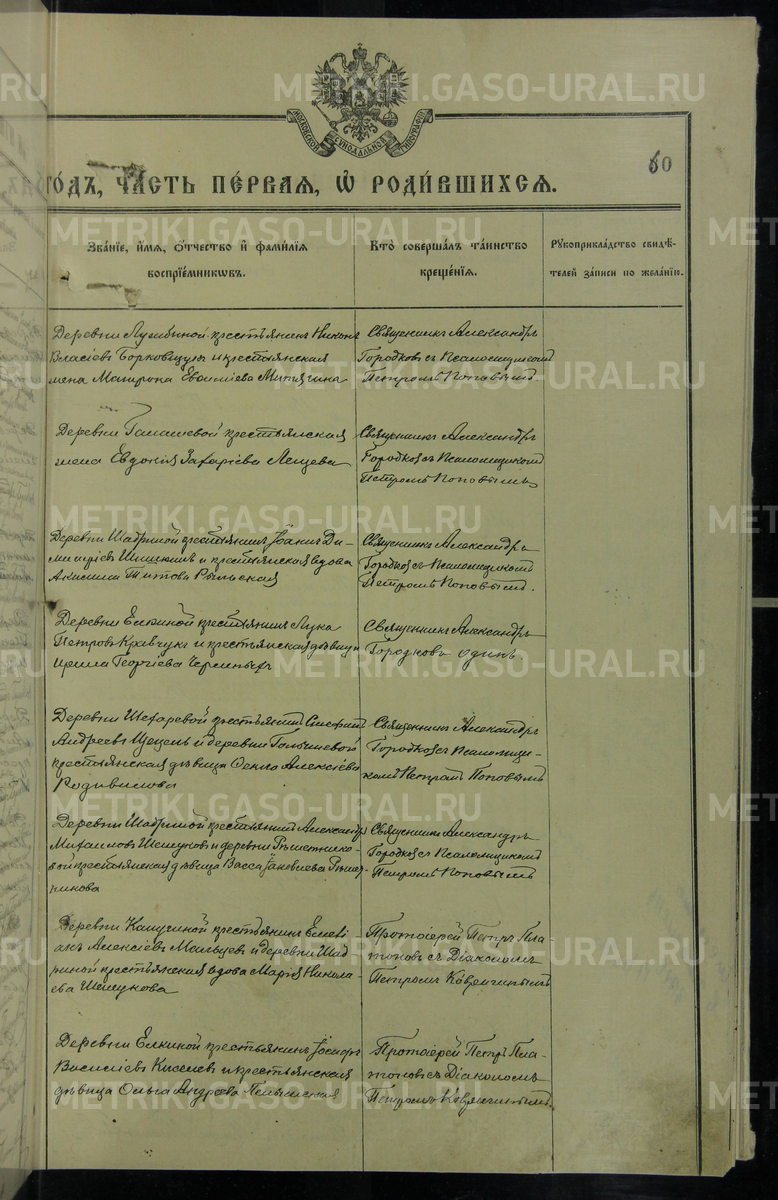 METRIKI.GASO-URAL.RU
МОСКОВСКОЙ СѴНОДАЛЬНОЙ ТИПОГРАФІИ
60
ГО́ДЪ, ЧА́СТЬ ПЕ́РВАЯ, Ѡ҆ РОДИ́ВШИХСЯ.
Зва́нїе, и҆́мя, ѻ҆́тчество и҆ фами́лїя
воспрїе́мниковъ.
Кто̀ соверша́лъ та́инство
креще́нїя.
Рꙋкоприкла́дство свидѣ́-
телей за́писи по жела́нїю.
Деревни крестьянинъ Никонъ
Власіевъ и крестьянская
жена Матрона Митягина
Священникъ Александръ
Городковъ съ Псаломщикомъ
Петромъ Поповымъ.
Деревни крестьянская
жена Евдокія Захаріева Лещева
Священникъ Александръ
Городковъ съ Псаломщикомъ
Петромъ Поповымъ
Деревни Шадриной крестьянинъ Іоаннъ Ди-
митріевъ Шишкинъ и крестьянская вдова
Анисья Титова
Священникъ Александръ
Городковъ съ Псаломщикомъ
Петромъ Поповымъ.
Деревни Елкиной крестьянинъ Лука
Петровъ Кравчукъ и крестьянская дѣвица
Георгіева Черныхъ
Священникъ Александръ
Городковъ одинъ.
Деревни крестьянинъ
Андреевъ и деревни
крестьянская дѣвица Ѳекла Алексіева
Родивилова
Священникъ Александръ
Городковъ съ Псаломщи-
комъ Петромъ Поповымъ
Деревни Шадриной крестьянинъ Александръ
Михаиловъ Шешуковъ и деревни Рѣшетнико-
вой крестьянская дѣвица Васса Рѣшет-
никова
Священникъ Александръ
Городковъ съ Псаломщикомъ
Петромъ Поповымъ
Деревни крестьянинъ Емелі-
анъ Алексіевъ Мальцевъ и деревни Шад-
риной крестьянская вдова Марія Никола-
ева Шешукова
Протоіерей Петръ Пла-
тоновъ съ Діакономъ
Петромъ
Деревни Елкиной крестьянинъ Іосифъ
Василіевъ Киселевъ и крестьянская
дѣвица Ольга Андреева
Протоіерей Петръ Пла-
тоновъ съ Діакономъ
Петромъ